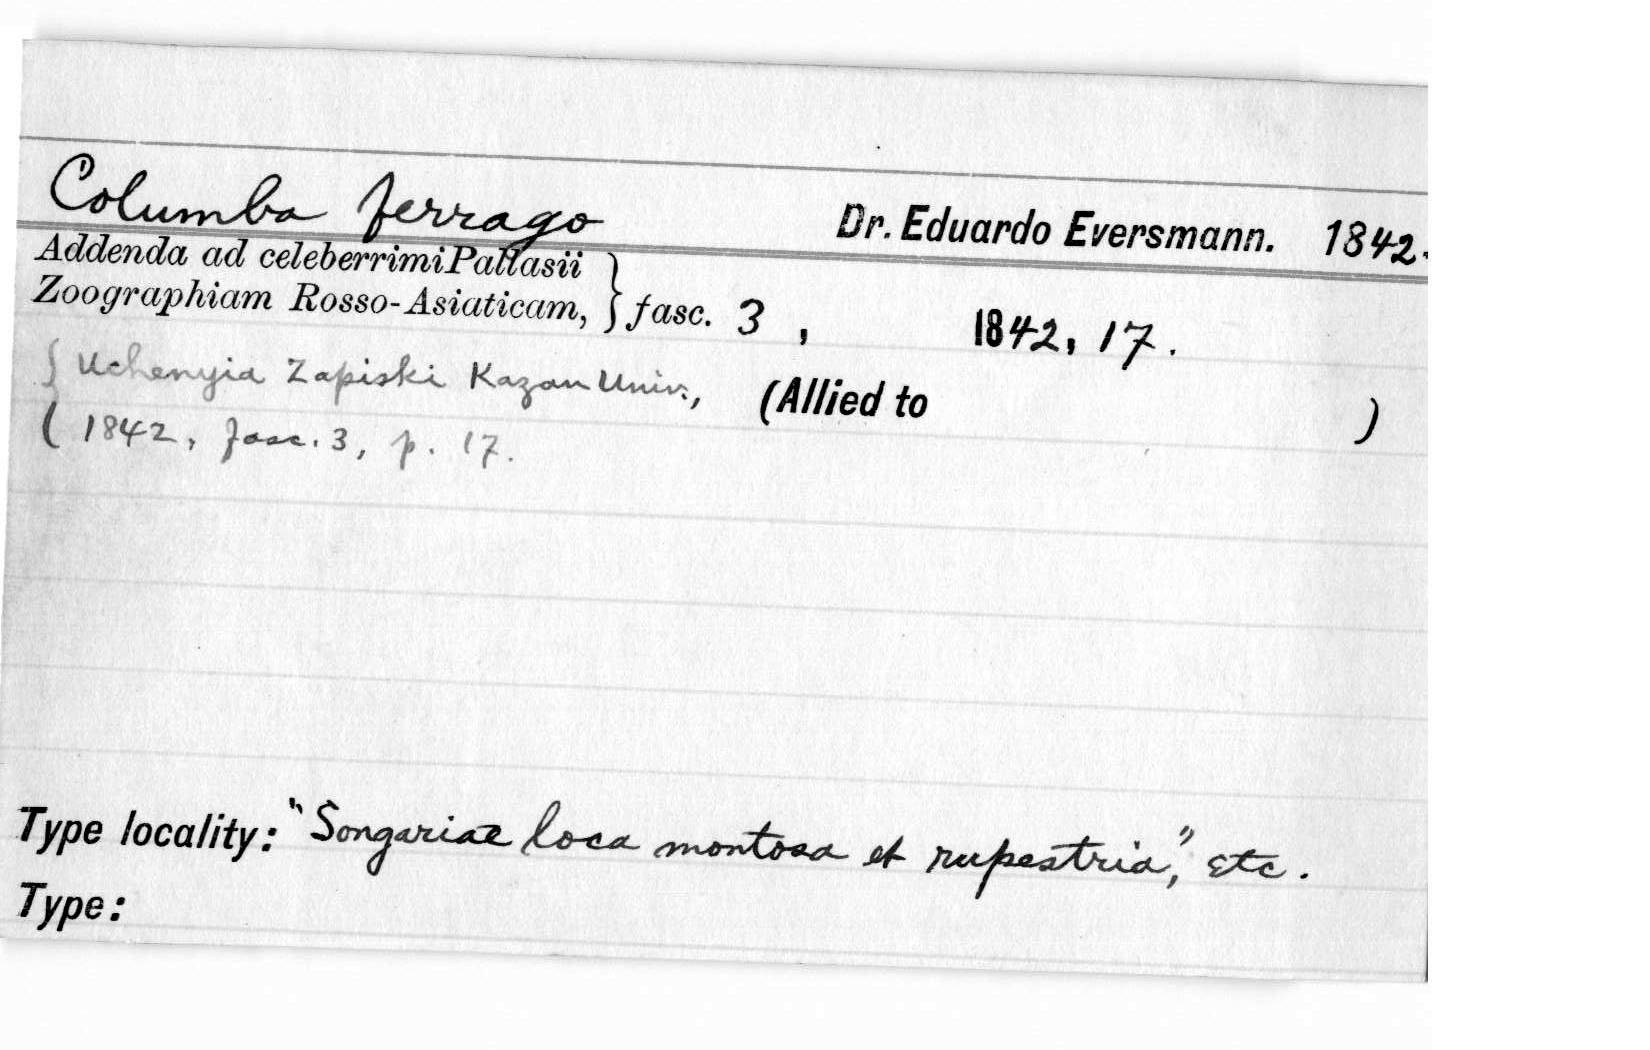 Columba ferrago Dr. Eduardo Eversmann. 1842.
Addenda ad celeberrimi Pallasii
Zoographiam Rosso-Asiaticam, } fasc. 3, 1842, 17.
{ Uchenyia Zapiski Kazan Univ., (Allied to )
( 1842, fasc. 3, p. 17.
Type locality: "Songariae loca montosa et rupestria," etc.
Type: